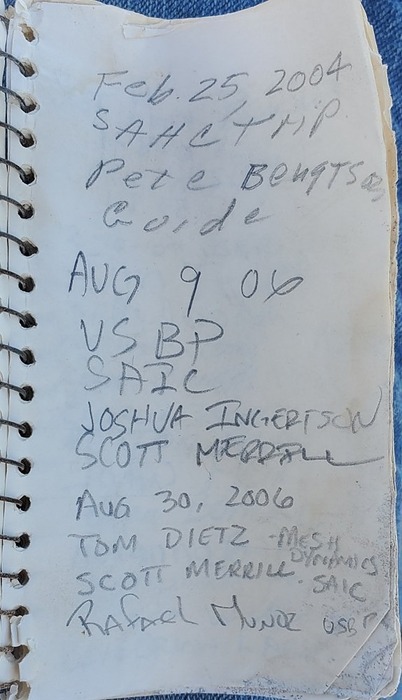 Feb. 25, 2004
SAHC TMP
Pete Bengtson
Guide
AUG 9 06
USBP
SAIC
JOSHUA INGERTSON
SCOTT MERRILL
AUG 30, 2006
TOM DIETZ - MESH DYNAMICS
SCOTT MERRILL - SAIC
Rafael Munoz USBP